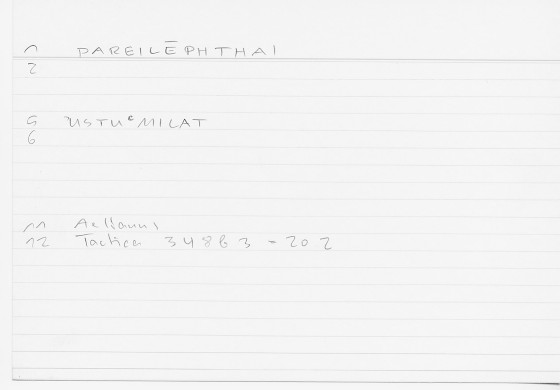 1 PAREILĒPHTHAI
2
5
6
11 Aelianus
12 Tactica 34863-202